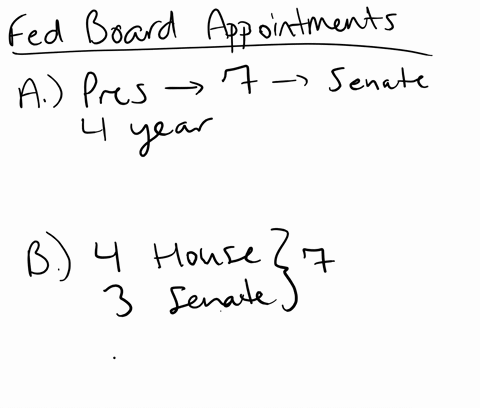 Fed Board Appointments
A.) Pres → 7 → Senate
4 year
B.) 4 House } 7
3 Senate